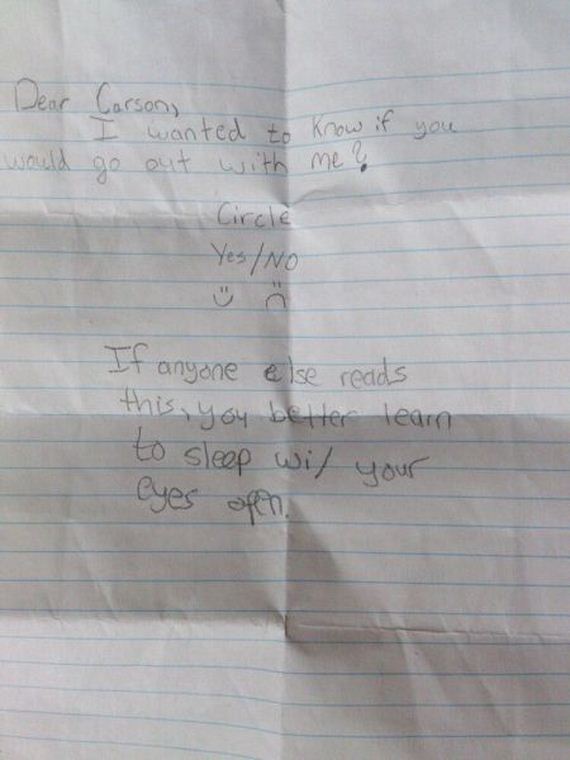 Dear Carson,
I wanted to know if you
would go out with me?
Circle
Yes/No
If anyone else reads
this, you better learn
to sleep wi/ your
eyes open.